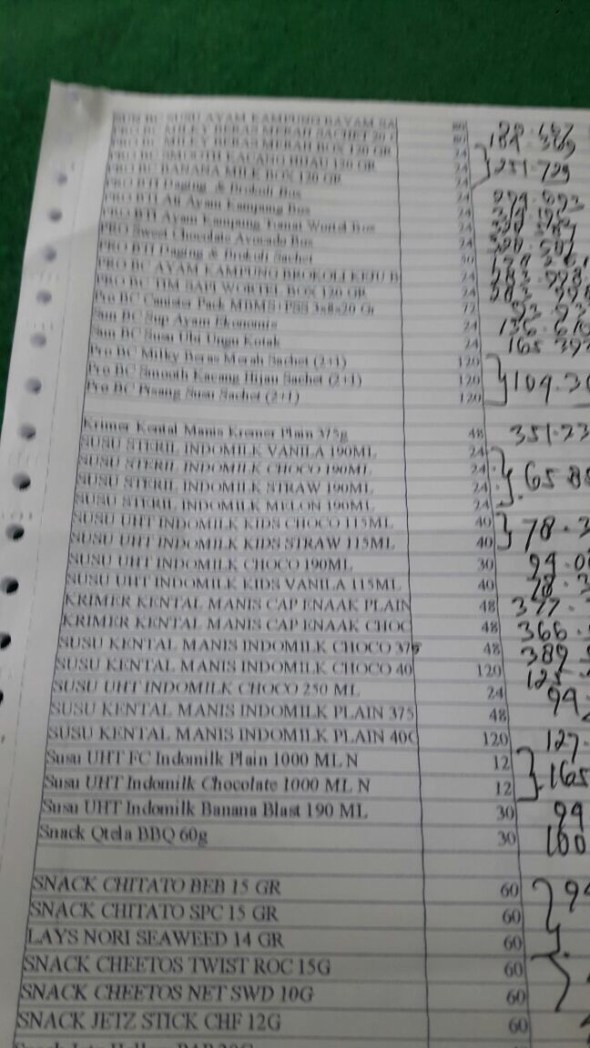 SUSU AYAM KAMPUNG BAYAM SA 80
PRO BC MILKY BERAS MERAH SACHET 20 G 80 188.386
PRO BC MILKY BERAS MERAH BOX 120 GR 24
PRO BC SMOOTH KACANG HIJAU 120 GR 24 251.729
PRO BC BANANA MILK BOX 120 GR 24
PRO BTI Daging & Brokoli Box 24
PRO BTI Ati Ayam Kampung Box 24
PRO BTI Ayam Kampung Tomat Wortel Box 24
PRO Sweet Chocolate Avocado Box 24
PRO BTI Daging & Brokoli Sachet
PRO BC AYAM KAMPUNG BROKOLI KEJU B 24
PRO BC TIM SAPI WORTEL BOX 120 GR 24
Pro BC Canister Pack MBMS+PSS 72
Sun BC Sup Ayam Ekonomis 24
Sun BC Susu Ubi Ungu Kotak 24 165
Pro BC Milky Beras Merah Sachet (2+1) 120
Pro BC Smooth Kacang Hijau Sachet (2+1) 120 109.30
Pro BC Pisang Susu Sachet (2+1) 120
Krimer Kental Manis Kremer Plain 375g 48 351.23
SUSU STERIL INDOMILK VANILA 190ML 24
SUSU STERIL INDOMILK CHOCO 190ML 24
SUSU STERIL INDOMILK STRAW 190ML 24 65.88
SUSU STERIL INDOMILK MELON 190ML 24
SUSU UHT INDOMILK KIDS CHOCO 115ML 40
SUSU UHT INDOMILK KIDS STRAW 115ML 40 78.3
SUSU UHT INDOMILK CHOCO 190ML 30 94.0
SUSU UHT INDOMILK KIDS VANILA 115ML 40 78.3
KRIMER KENTAL MANIS CAP ENAAK PLAIN 48 377.
KRIMER KENTAL MANIS CAP ENAAK CHOC 48 366.
SUSU KENTAL MANIS INDOMILK CHOCO 375 48 389
SUSU KENTAL MANIS INDOMILK CHOCO 40 120
SUSU UHT INDOMILK CHOCO 250 ML 24 94
SUSU KENTAL MANIS INDOMILK PLAIN 375 48
SUSU KENTAL MANIS INDOMILK PLAIN 40G 120 127.
Susu UHT FC Indomilk Plain 1000 ML N 12
Susu UHT Indomilk Chocolate 1000 ML N 12 165
Susu UHT Indomilk Banana Blast 190 ML 30 94
Snack Qtela BBQ 60g 30 100
SNACK CHITATO BEB 15 GR 60 94
SNACK CHITATO SPC 15 GR 60
LAYS NORI SEAWEED 14 GR 60
SNACK CHEETOS TWIST ROC 15G 60
SNACK CHEETOS NET SWD 10G 60
SNACK JETZ STICK CHF 12G 60